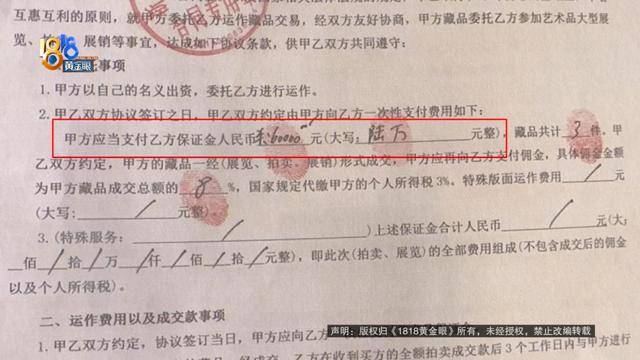 互惠互利的原则，就甲方委托乙方运作藏品交易，经双方友好协商，甲方藏品委托乙方参加艺术品大型展
展销等事宜，达成如下协议条款，供甲乙双方共同遵守：
1818
黄金眼
事项
1.甲方以自己的名义出资，委托乙方进行运作。
2.甲乙双方协议签订之日，甲方双方约定由甲方向乙方一次性支付费用如下：
甲方应当支付乙方保证金人民币 60000 元(大写：陆万 元整)，藏品共计 3 件。甲
乙双方约定，甲方的藏品一经(展览、拍卖、展销)形式成交，甲方应再向乙方支付佣金，具体佣金金额
为甲方藏品成交总额的 8 %，国家规定代缴甲方的个人所得税3%。特殊版面运作费用 / 元
(大写： / 元整)。
3.(特殊服务： / )上述保证金合计人民币 / 元(大
/ 佰 / 拾 / 万 / 仟 / 佰 / 拾 / 元整)，即此次(拍卖、展览)的全部费用组成(不包含成交后的佣金
以及个人所得税)。
声明：版权归《1818黄金眼》所有，未经授权，禁止改编转载
二、运作费用以及成交款事项
1.甲方约定，协议签订当日，甲方应向乙方
乙方在收到买方的全额拍卖成交款后3个工作日内与甲方进行